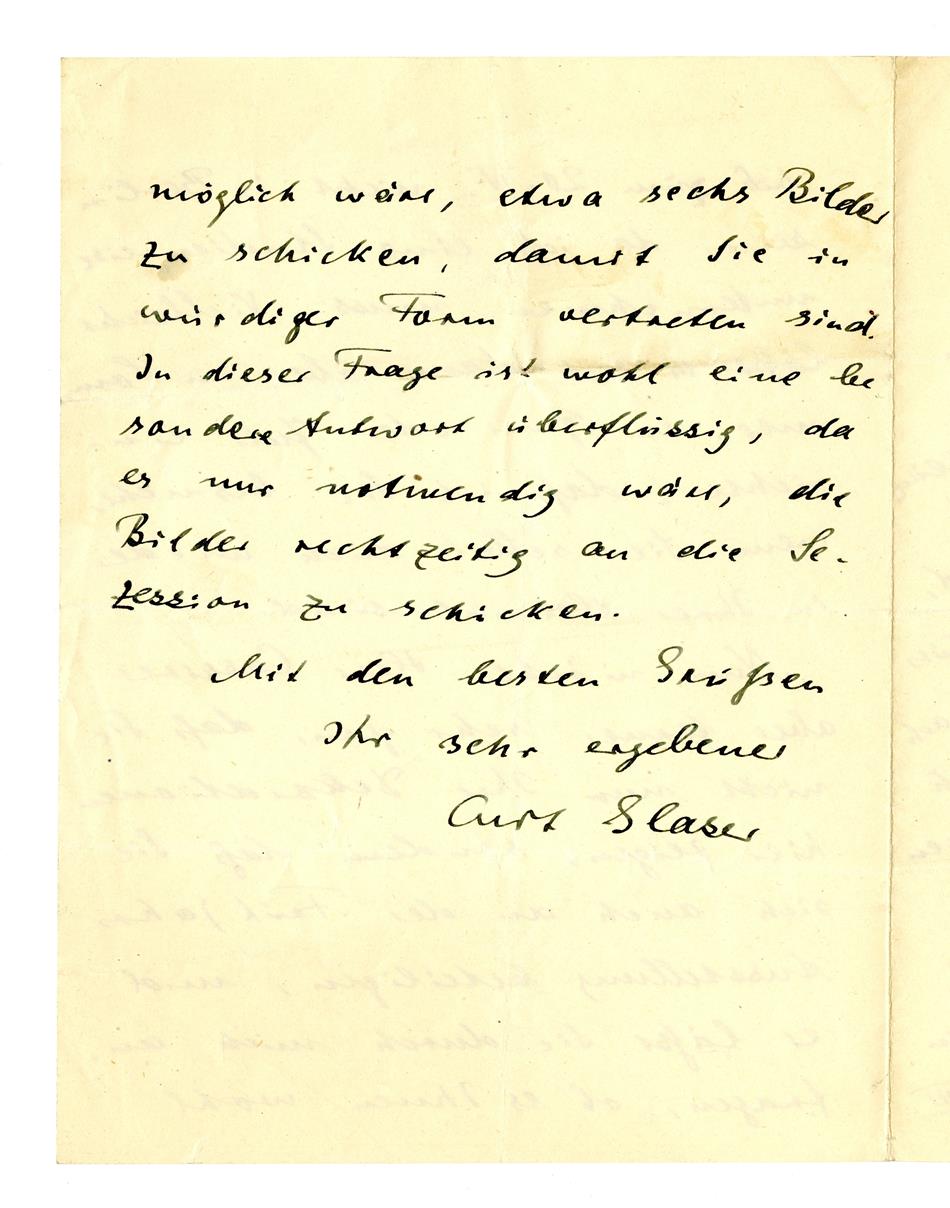 möglich wäre, etwa sechs Bilder
zu schicken, damit Sie in
würdiger Form vertreten sind.
In dieser Frage ist wohl eine be
sondere Antwort überflüssig, da
es nur notwendig wäre, die
Bilder rechtzeitig an die Se-
zession zu schicken.
Mit den besten Grüßen
Ihr sehr ergebener
Curt Glaser